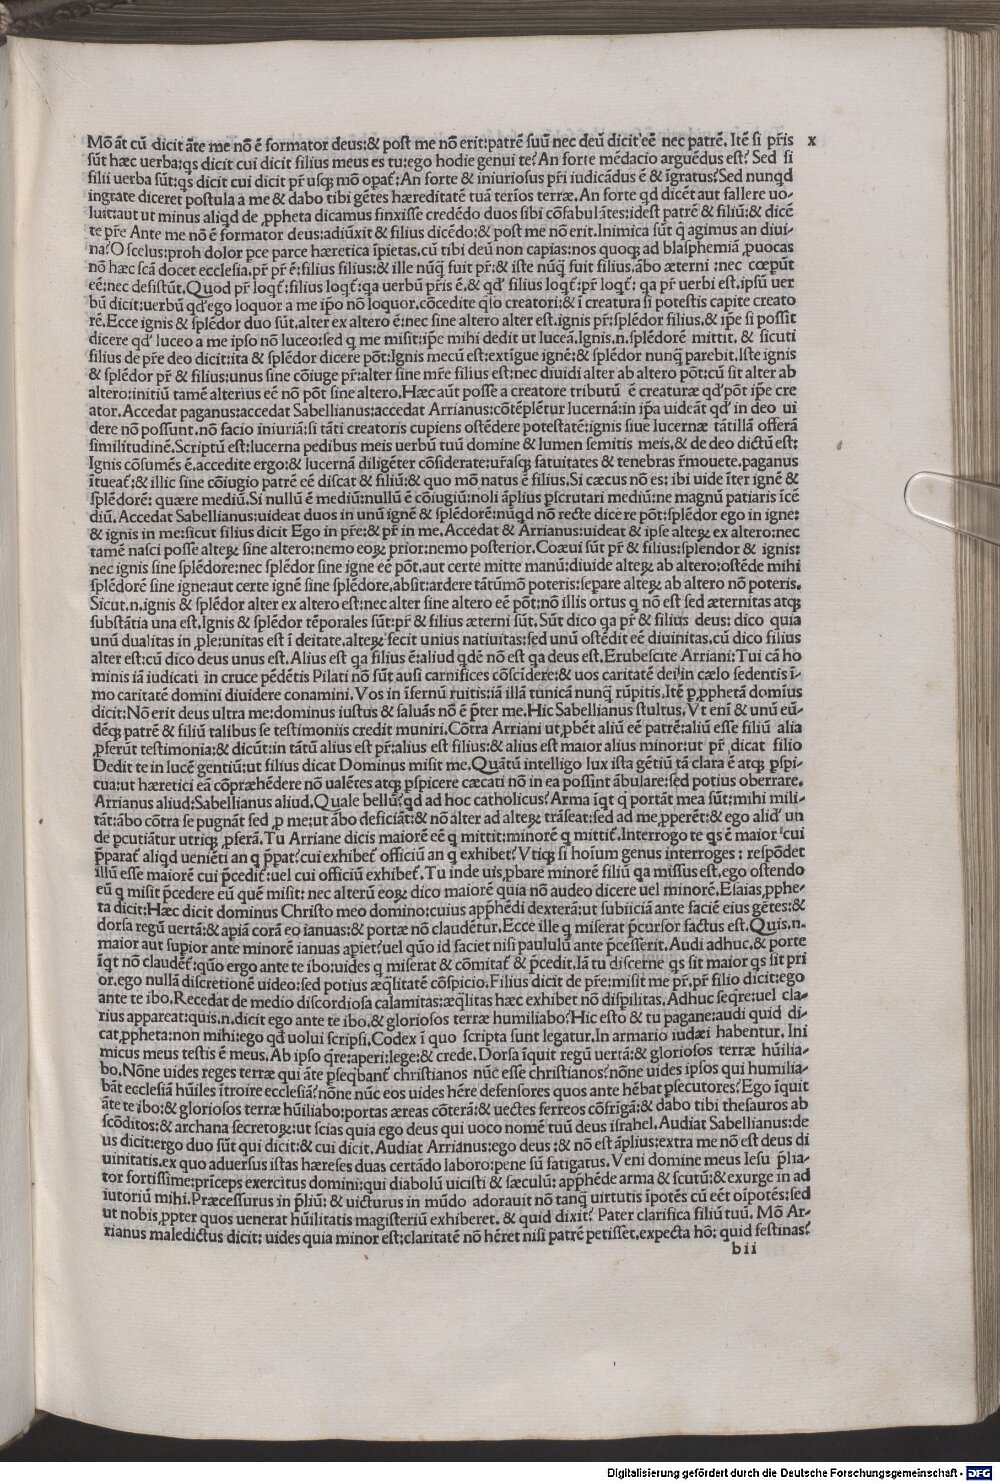 Mõ ãt cũ dicit ãte me nõ ẽ formator deus:& post me nõ erit:patrẽ suũ nec deũ dicit eẽ nec patrẽ. Itẽ si pr̃is x
sũt hæc uerba:qs dicit cui dicit filius meus es tu:ego hodie genui te? An forte mẽdacio arguẽdus est? Sed si
filii uerba sũt:qs dicit cui dicit pr̃ usqʒ mõ opat̃:An forte & iniuriosus pr̃i iudicãdus ẽ & ĩgratus? Sed nunqd
ingrate diceret postula a me & dabo tibi gẽtes hæreditatẽ tuã terĩos terræ. An forte qd dicẽt aut fallere uo-
luit:aut ut minus aliqd de ꝓpheta dicamus finxisse credẽdo duos sibi cõfabulãtes:idest patrẽ & filiũ:& dicẽ
te pr̃e Ante me nõ ẽ formator deus:adiũxit & filius dicẽdo:& post me nõ erit. Inimica sũt q̃ agimus an diui-
na? O scelus:proh dolor pce parce hæretica ĩpietas. cũ tibi deũ non capias:nos quoqʒ ad blasphemiã ꝓuocas
nõ hæc scã docet ecclesia. pr̃ pr̃ ẽ:filius filius:& ille nũq̃ fuit pr̃:& iste nũq̃ fuit filius. ãbo æterni :nec cœpũt
eẽ:nec desistũt. Quod pr̃ loqt̃:filius loqt̃:qa uerbũ pr̃is ẽ. & qd̃ filius loqt̃:pr̃ loqt̃: qa pr̃ uerbi est. ipsũ uer
bũ dicit:uerbũ qd̃ ego loquor a me ip̃o nõ loquor. cõcedite q̃lo creatori:& ĩ creatura si potestis capite creato
rẽ. Ecce ignis & splẽdor duo sũt. alter ex altero ẽ:nec sine altero alter est. ignis pr̃:splẽdor filius. & ip̃e si possit
dicere qd̃ luceo a me ipso nõ luceo:sed q me misit:ip̃e mihi dedit ut luceã. Ignis.n. splẽdorẽ mittit. & sicuti
filius de pr̃e deo dicit:ita & splẽdor dicere põt:Ignis mecũ est:extĩgue ignẽ:& splẽdor nunq̃ parebit. Iste ignis
& splẽdor pr̃ & filius:unus sine cõiuge pr̃:alter sine mr̃e filius est:nec diuidi alter ab altero põt:cũ sit alter ab
altero:initiũ tamẽ alterius eẽ nõ põt sine altero. Hæc aũt posse a creatore tributũ ẽ creaturæ qd̃ põt ip̃e cre
ator. Accedat paganus:accedat Sabellianus:accedat Arrianus:cõtẽplẽtur lucernã:in ip̃a uideãt qd̃ in deo ui
dere nõ possunt. nõ facio iniuriã:si tãti creatoris cupiens ostẽdere potestatẽ:ignis siue lucernæ tãtillã offerã
similitudinẽ. Scriptũ est:lucerna pedibus meis uerbũ tuũ domine & lumen semitis meis. & de deo dictũ est:
Ignis cõsumẽs ẽ. accedite ergo:& lucernã diligẽter cõsiderate:ur̃asqʒ fatuitates & tenebras r̃mouete. paganus
ĩtueat̃:& illic sine cõiugio patrẽ eẽ discat & filiũ:& quo mõ natus ẽ filius. Si cæcus nõ es: ibi uide ĩter ignẽ &
splẽdorẽ: quære mediũ. Si nullũ ẽ mediũ:nullũ ẽ cõiugiũ:noli ãplius pscrutari mediũ:ne magnũ patiaris ĩcẽ
diũ. Accedat Sabellianus:uideat duos in unũ ignẽ & splẽdorẽ:nũqd nõ recte dicere põt:splẽdor ego in igne:
& ignis in me:sicut filius dicit Ego in pr̃e:& pr̃ in me. Accedat & Arrianus:uideat & ipse alteꝝ ex altero:nec
tamẽ nasci posse alteꝝ sine altero:nemo eoꝝ prior:nemo posterior. Coæui sũt pr̃ & filius:splendor & ignis:
nec ignis sine splẽdore:nec splẽdor sine igne eẽ põt. aut certe mitte manũ:diuide alteꝝ ab altero:ostẽde mihi
splẽdorẽ sine igne:aut certe ignẽ sine splẽdore. absit:ardere tãtũmõ poteris:separe alteꝝ ab altero nõ poteris.
Sicut.n. ignis & splẽdor alter ex altero est:nec alter sine altero eẽ põt:nõ illis ortus q nõ est sed æternitas atqʒ
substãtia una est. Ignis & splẽdor tẽporales sũt:pr̃ & filius æterni sũt. Sũt dico qa pr̃ & filius deus: dico quia
unũ dualitas in ple:unitas est ĩ deitate. alteꝝ fecit unius natiuitas:sed unũ ostẽdit eẽ diuinitas. cũ dico filius
alter est:cũ dico deus unus est. Alius est qa filius ẽ:aliud qdẽ nõ est qa deus est. Erubescite Arriani:Tui cã ho
minis iã iudicati in cruce pẽdẽtis Pilati nõ sũt ausi carnifices cõscĩdere:& uos caritatẽ dei in cælo sedentis ĩ-
mo caritatẽ domini diuidere conamini. Vos in ĩfernũ ruitis:iã illã tunicã nunq̃ rũpitis. Itẽ p ꝓphetã domĩus
dicit:Nõ erit deus ultra me:dominus iustus & saluãs nõ ẽ p̃ter me. Hic Sabellianus stultus. Vt enĩ & unũ eũ-
dẽqʒ patrẽ & filiũ talibus se testimoniis credit muniri. Cõtra Arriani ut ꝓbẽt aliũ eẽ patrẽ:aliũ esse filiũ alia
ꝓferũt testimonia:& dicũt:in tãtũ alius est pr̃:alius est filius:& alius est maior alius minor:ut pr̃ dicat filio
Dedit te in lucẽ gentiũ:ut filius dicat Dominus misit me. Quãtũ intelligo lux ista gẽtiũ tã clara ẽ atqʒ pspi-
cua:ut hæretici eã cõpræhẽdere nõ ualẽtes atqʒ pspicere cæcati nõ in ea possint ãbulare:sed potius oberrare.
Arrianus aliud:Sabellianus aliud. Quale bellũ? qd ad hoc catholicus? Arma ĩqt q̃ portãt mea sũt:mihi mili-
tãt:ãbo cõtra se pugnãt sed ꝓ me:ut ãbo deficiãt:& nõ alter ad alteꝝ trãseat:sed ad me ꝓperẽt:& ego alid̃ un
de pcutiãtur utriqʒ ꝓferã. Tu Arriane dicis maiorẽ eẽ q mittit:minorẽ q mittit̃. Interrogo te qs ẽ maior cui
p̃parat̃ aliqd ueniẽti an q p̃pat? cui exhibet̃ officiũ an q exhibet? Vtiqʒ si hoĩum genus interroges : respõdet
illũ esse maiorẽ cui p̃cedit̃:uel cui officiũ exhibet̃. Tu inde uis ꝓbare minorẽ filiũ qa missus est. ego ostendo
eũ q misit p̃cedere eũ quẽ misit: nec alterũ eoꝝ dico maiorẽ quia nõ audeo dicere uel minorẽ. Esaias ꝓphe-
ta dicit:Hæc dicit dominus Christo meo domino:cuius app̃hẽdi dexterã:ut subiiciã ante faciẽ eius gẽtes:&
dorsa regũ uertã:& apiã corã eo ianuas:& portæ nõ claudẽtur. Ecce ille q miserat p̃cursor factus est. Quis.n.
maior aut supior ante minorẽ ianuas apiet? uel quõ id faciet nisi paululũ ante p̃cesserit. Audi adhuc. & porte
ĩqt nõ claudẽt̃:quõ ergo ante te ibo:uides q miserat & cõmitat̃ & p̃cedit. Iã tu discerne qs sit maior qs sit pri
or. ego nullã discretionẽ uideo:sed potius æq̃litatẽ cõspicio. Filius dicit de pr̃e:misit me pr̃. pr̃ filio dicit:ego
ante te ibo. Recedat de medio discordiosa calamitas:æq̃litas hæc exhibet nõ dispilitas. Adhuc seqr̃e:uel cla-
rius appareat:quis.n. dicit ego ante te ibo. & gloriosos terræ humiliabo? Hic esto & tu pagane:audi quid di-
cat ꝓpheta:non mihi:ego qd̃ uolui scripsi. Codex ĩ quo scripta sunt legatur. In armario iudæi habentur. Ini
micus meus testis ẽ meus. Ab ipso qr̃e:aperi:lege:& crede. Dorsa ĩquit regũ uertã:& gloriosos terræ hũilia-
bo. Nõne uides reges terræ qui ãte pseqbant̃ christianos nũc esse christianos? nõne uides ipsos qui humilia-
bãt ecclesiã hũiles ĩtroire ecclesiã? nõne nũc eos uides hẽre defensores quos ante hẽbat psecutores? Ego ĩquit
ãte te ibo:& gloriosos terræ hũiliabo:portas æreas cõterã:& uectes ferreos cõfrĩgã:& dabo tibi thesauros ab
scõditos:& archana secretoꝝ:ut scias quia ego deus qui uoco nomẽ tuũ deus israhel. Audiat Sabellianus:de
us dicit:ergo duo sũt qui dicit:& cui dicit. Audiat Arrianus:ego deus :& nõ est ãplius:extra me nõ est deus di
uinitatis. ex quo aduersus istas hæreses duas certãdo laboro:pene sũ fatigatus. Veni domine meus Iesu p̃lia-
tor fortissime:prĩceps exercitus domini:qui diabolũ uicisti & sæculũ: app̃hẽde arma & scutũ:& exurge in ad
iutoriũ mihi. Præcessurus in p̃liũ:& uicturus in mũdo adorauit nõ tanq̃ uirtutis ĩpotẽs cũ eẽt oĩpotẽs:sed
ut nobis ꝓpter quos uenerat hũilitatis magisteriũ exhiberet. & quid dixit? Pater clarifica filiũ tuũ. Mõ Ar-
rianus maledictus dicit: uides quia minor est:claritatẽ nõ hẽret nisi patrẽ petisset. expecta hõ: quid festinas?
bii
Digitalisierung gefördert durch die Deutsche Forschungsgemeinschaft - DFG